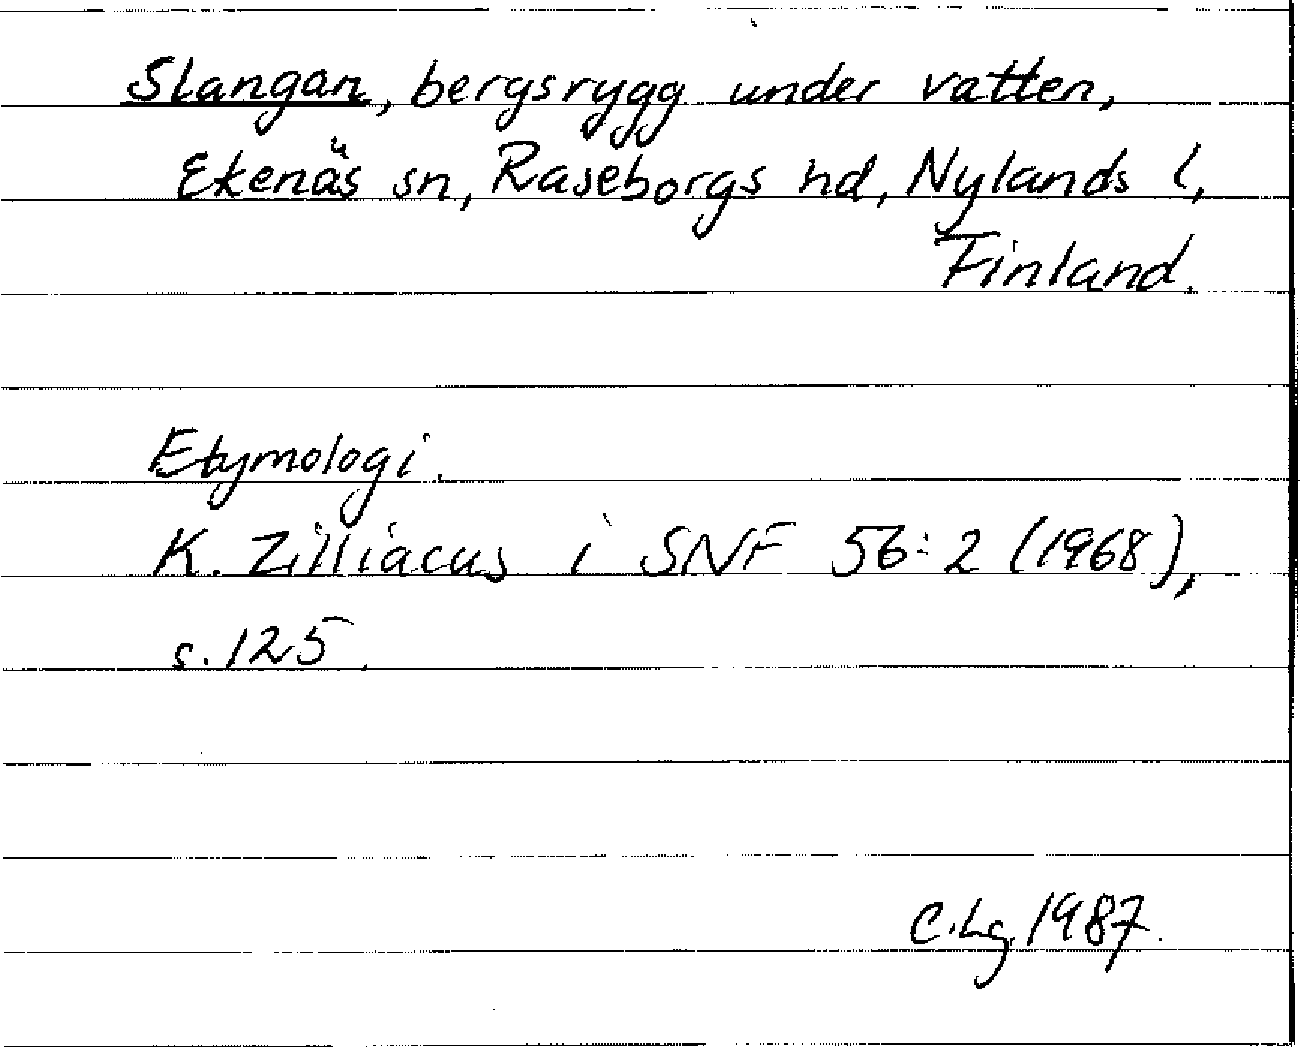 Slangan, bergsrygg under vatten,
Ekenäs sn, Raseborgs hd, Nylands l,
Finland.
Etymologi.
K. Zilliacus i SNF 56:2 (1968),
s. 125.
C.Lg. 1987.